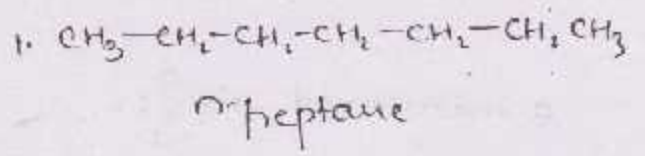 1. CH₃—CH₂-CH₂-CH₂-CH₂-CH₂ CH₃
n-heptane